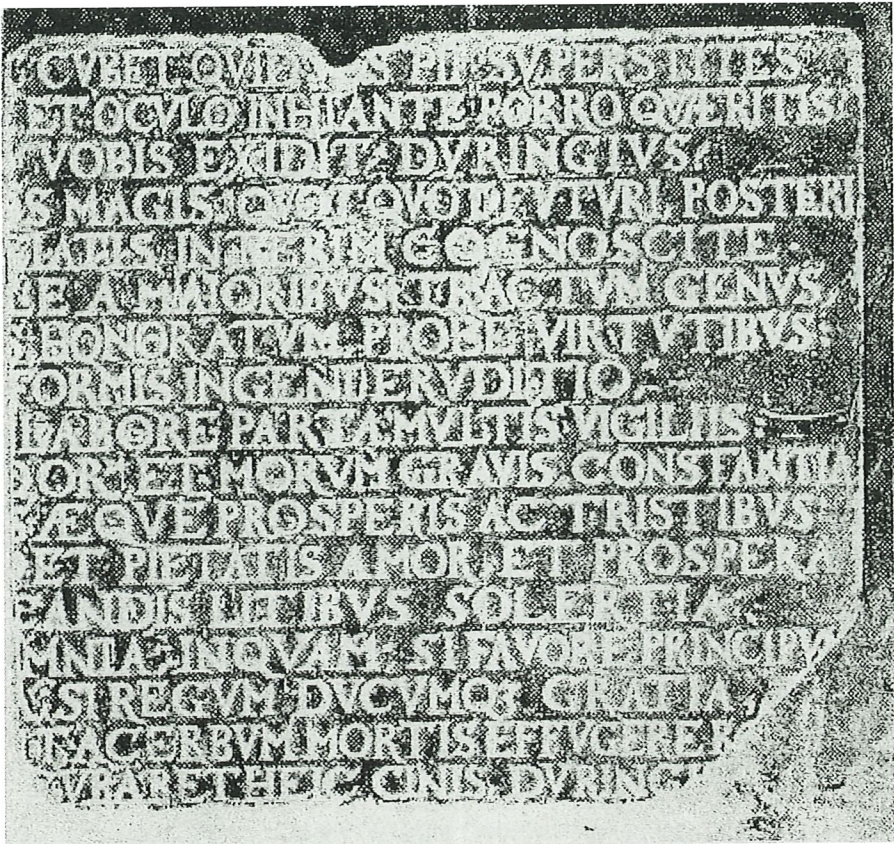 CVBET QVIE S PII SVPERSTITES
ET OCVLO INHIANTE PORRO QVÆRITIS
VOBIS EXIDIT DVRINGIVS
S MAGIS QVOTQVOT FVTVRI POSTERI
TATIS INTERIM COGNOSCITE
E A MAIORIBVS TRACTVM GENVS
HONORATVM PROBE VIRTVTIBVS
ORMIS INGENTI ERVDITIO
LABORE PARTA MVLTIS VIGILIIS
OR ET MORVM GRAVIS CONSTANTIA
ÆQVE PROSPERIS AC TRISTIBVS
ET PIETATIS AMOR ET PROSPERA
ANDIS LITIBVS SOLERTIA
MNIA INQVAM SI FAVOR E PRINCIPVM
SI REGVM DVCVMQ3 GRATIA
T ACERBVM MORTIS EFFVGERE
VBARET HEIC CINIS DVRING